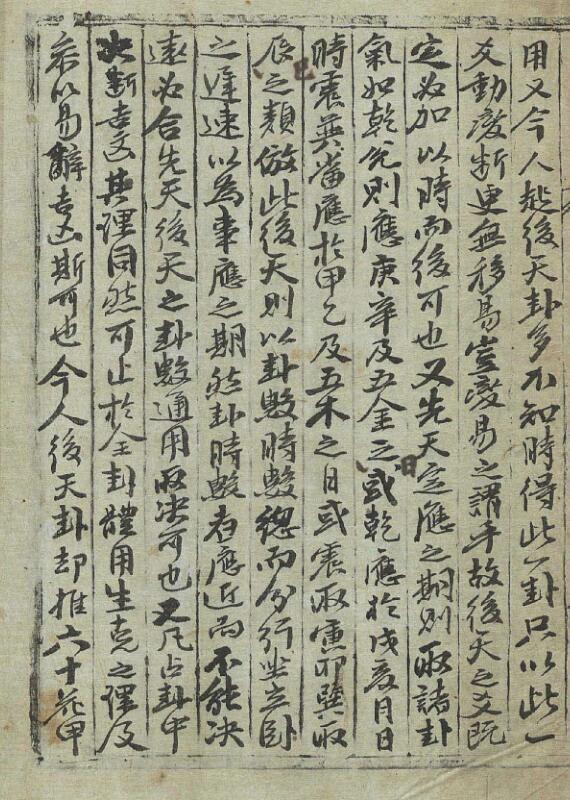 用又今人起後天卦多不知時得此一卦只以此一
爻動廢斷更無移易豈變易之謂乎故後天之爻既
定必加以時而後可也又先天定應之期則取諸卦
氣如乾兌則應庚辛及五金之日或乾應於戌亥月日
時震巽當應於甲乙及五木之日或震取寅卯巽取
辰巳之類倣此後天則以卦數時數總而分行坐立臥
之遲速以為事應之期然卦時數者應近而不能決
遠必合先天後天之卦數通用取決可也又凡占卦中
決斷吉凶其理同然可止於全卦體用生克之理及
叅以易辭吉凶斯可也今人後天卦却推六十花甲